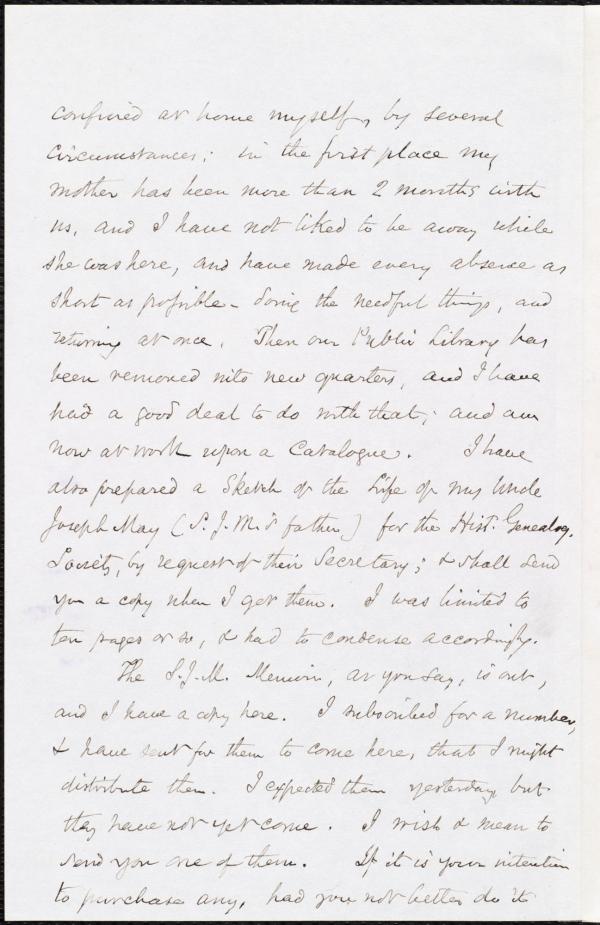 confined at home myself, by several
circumstances; in the first place my
mother has been more than 2 months with
us, and I have not liked to be away while
she was here, and have made every absence as
short as possible - doing the needful things, and
returning at once. Then our Public Library has
been removed into new quarters, and I have
had a good deal to do with that; and am
now at work upon a Catalogue. I have
also prepared a Sketch of the Life of my Uncle
Joseph May (S. J. M.'s father) for the Hist. Genealog.
Society, by request of their Secretary; & shall send
you a copy when I get them. I was limited to
ten pages or so, & had to condense accordingly.
The S. J. M. Memoir, as you say, is out,
and I have a copy here. I subscribed for a number,
& have sent for them to come here, that I might
distribute them. I expected them yesterday, but
they have not yet come. I wish & mean to
send you one of them. If it is your intention
to purchase any, had you not better do it